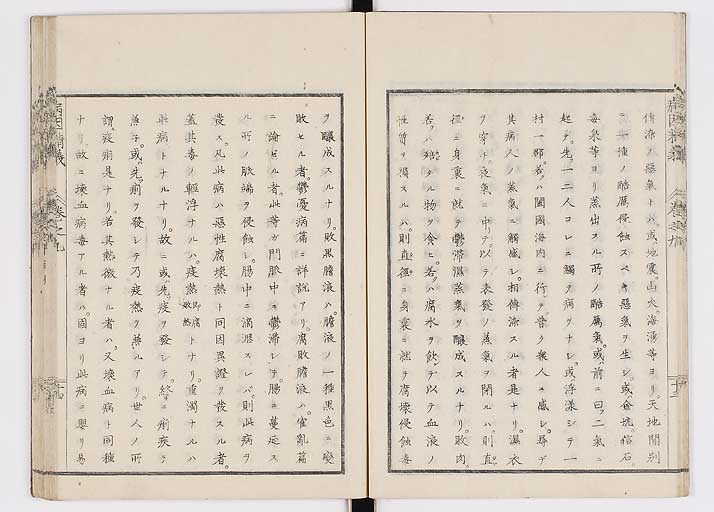 傳染ノ惡氣トハ、或地震。山火。海湧等ヨリ。天地間別
ニ一種ノ酷厲侵蝕スベキ惡氣ヲ生シ。或金坑。信石。
毒泉等ヨリ蒸出スル所ノ酷厲氣。或前ニ曰フ二氣ニ
起テ。先一二人コレニ觸テ病ヲナシ。或浮漾シテ一
村一郷。若ハ闔國海内ニ行テ。普ク衆人ニ感シ。尋デ
其病人ノ蒸氣ニ觸感シ。相傳染スル者是ナリ。濕衣
ヲ穿テ。夜氣ニ中テ。以テ表發ノ蒸氣ヲ閉ルハ。則直
徑ニ身裏ニ就テ鬱滯濕蒸氣ヲ釀成スルナリ。敗肉。
若ハ殠タル物ヲ食ヒ。若ハ腐水ヲ飲デ。以テ血液ノ
性質ヲ損スルハ。則直徑ニ身裏ニ就テ腐壞侵蝕毒
ヲ釀成スルナリ。敗黑膽液ハ。膽液ノ一種黑色ニ變
敗セル者。鬱憂病篇ニ詳説アリ。腐敗膽液ハ。霍亂篇
ニ論セル者。此等ガ門脈中ニ鬱滯シテ。腸ニ蔓延ス
ル所ノ脈端ヲ侵蝕シ。腸中ニ滴瀝スレバ。則此病ヲ
發ス。凡此病ハ惡性腐壞熱ト同因異證ヲ發スル者。
蓋其毒ノ輕浮ナルハ。疫熱 即腐敗熱 トナリ。重濁ナルハ
此病トナルナリ。故ニ或先疫ヲ發シテ。終ニ痢疾ヲ
兼子。或先痢ヲ發シテ乃疫熱ヲ兼ルアリ。世人ノ所
謂疫痢是ナリ。若其熱微ナル者ハ。又壞血病ト同種
ナリ。故ニ壞血病毒アル者ハ。固ヨリ此病ニ嬰リ易